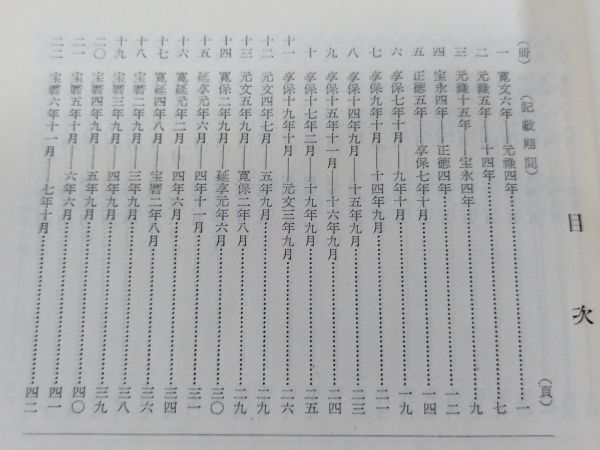 目次
(冊) (記載期間) (頁)
一 寛文六年――元禄四年……………………一
二 元禄五年――十四年……………………七
三 元禄十五年――宝永四年……………………九
四 宝永四年――正徳四年……………………一二
五 正徳五年――享保七年十月……………………一四
六 享保七年十月――九年十月……………………一九
七 享保九年十月――十四年九月……………………二一
八 享保十四年九月――十五年九月……………………二三
九 享保十五年十一月――十六年九月……………………二四
十 享保十七年二月――十九年九月……………………二五
十一 享保十九年十月――元文三年九月……………………二六
十二 元文四年七月――五年九月……………………二九
十三 元文五年九月――寛保二年八月……………………二九
十四 寛保二年九月――延享元年六月……………………三〇
十五 延享元年六月――四年十一月……………………三一
十六 寛延元年二月――四年六月……………………三四
十七 寛延四年八月――宝暦二年八月……………………三六
十八 宝暦二年九月――三年九月……………………三八
十九 宝暦三年九月――四年九月……………………三九
二〇 宝暦四年九月――五年九月……………………四〇
二一 宝暦五年十月――六年六月……………………四一
二二 宝暦六年十一月――七年十月……………………四二